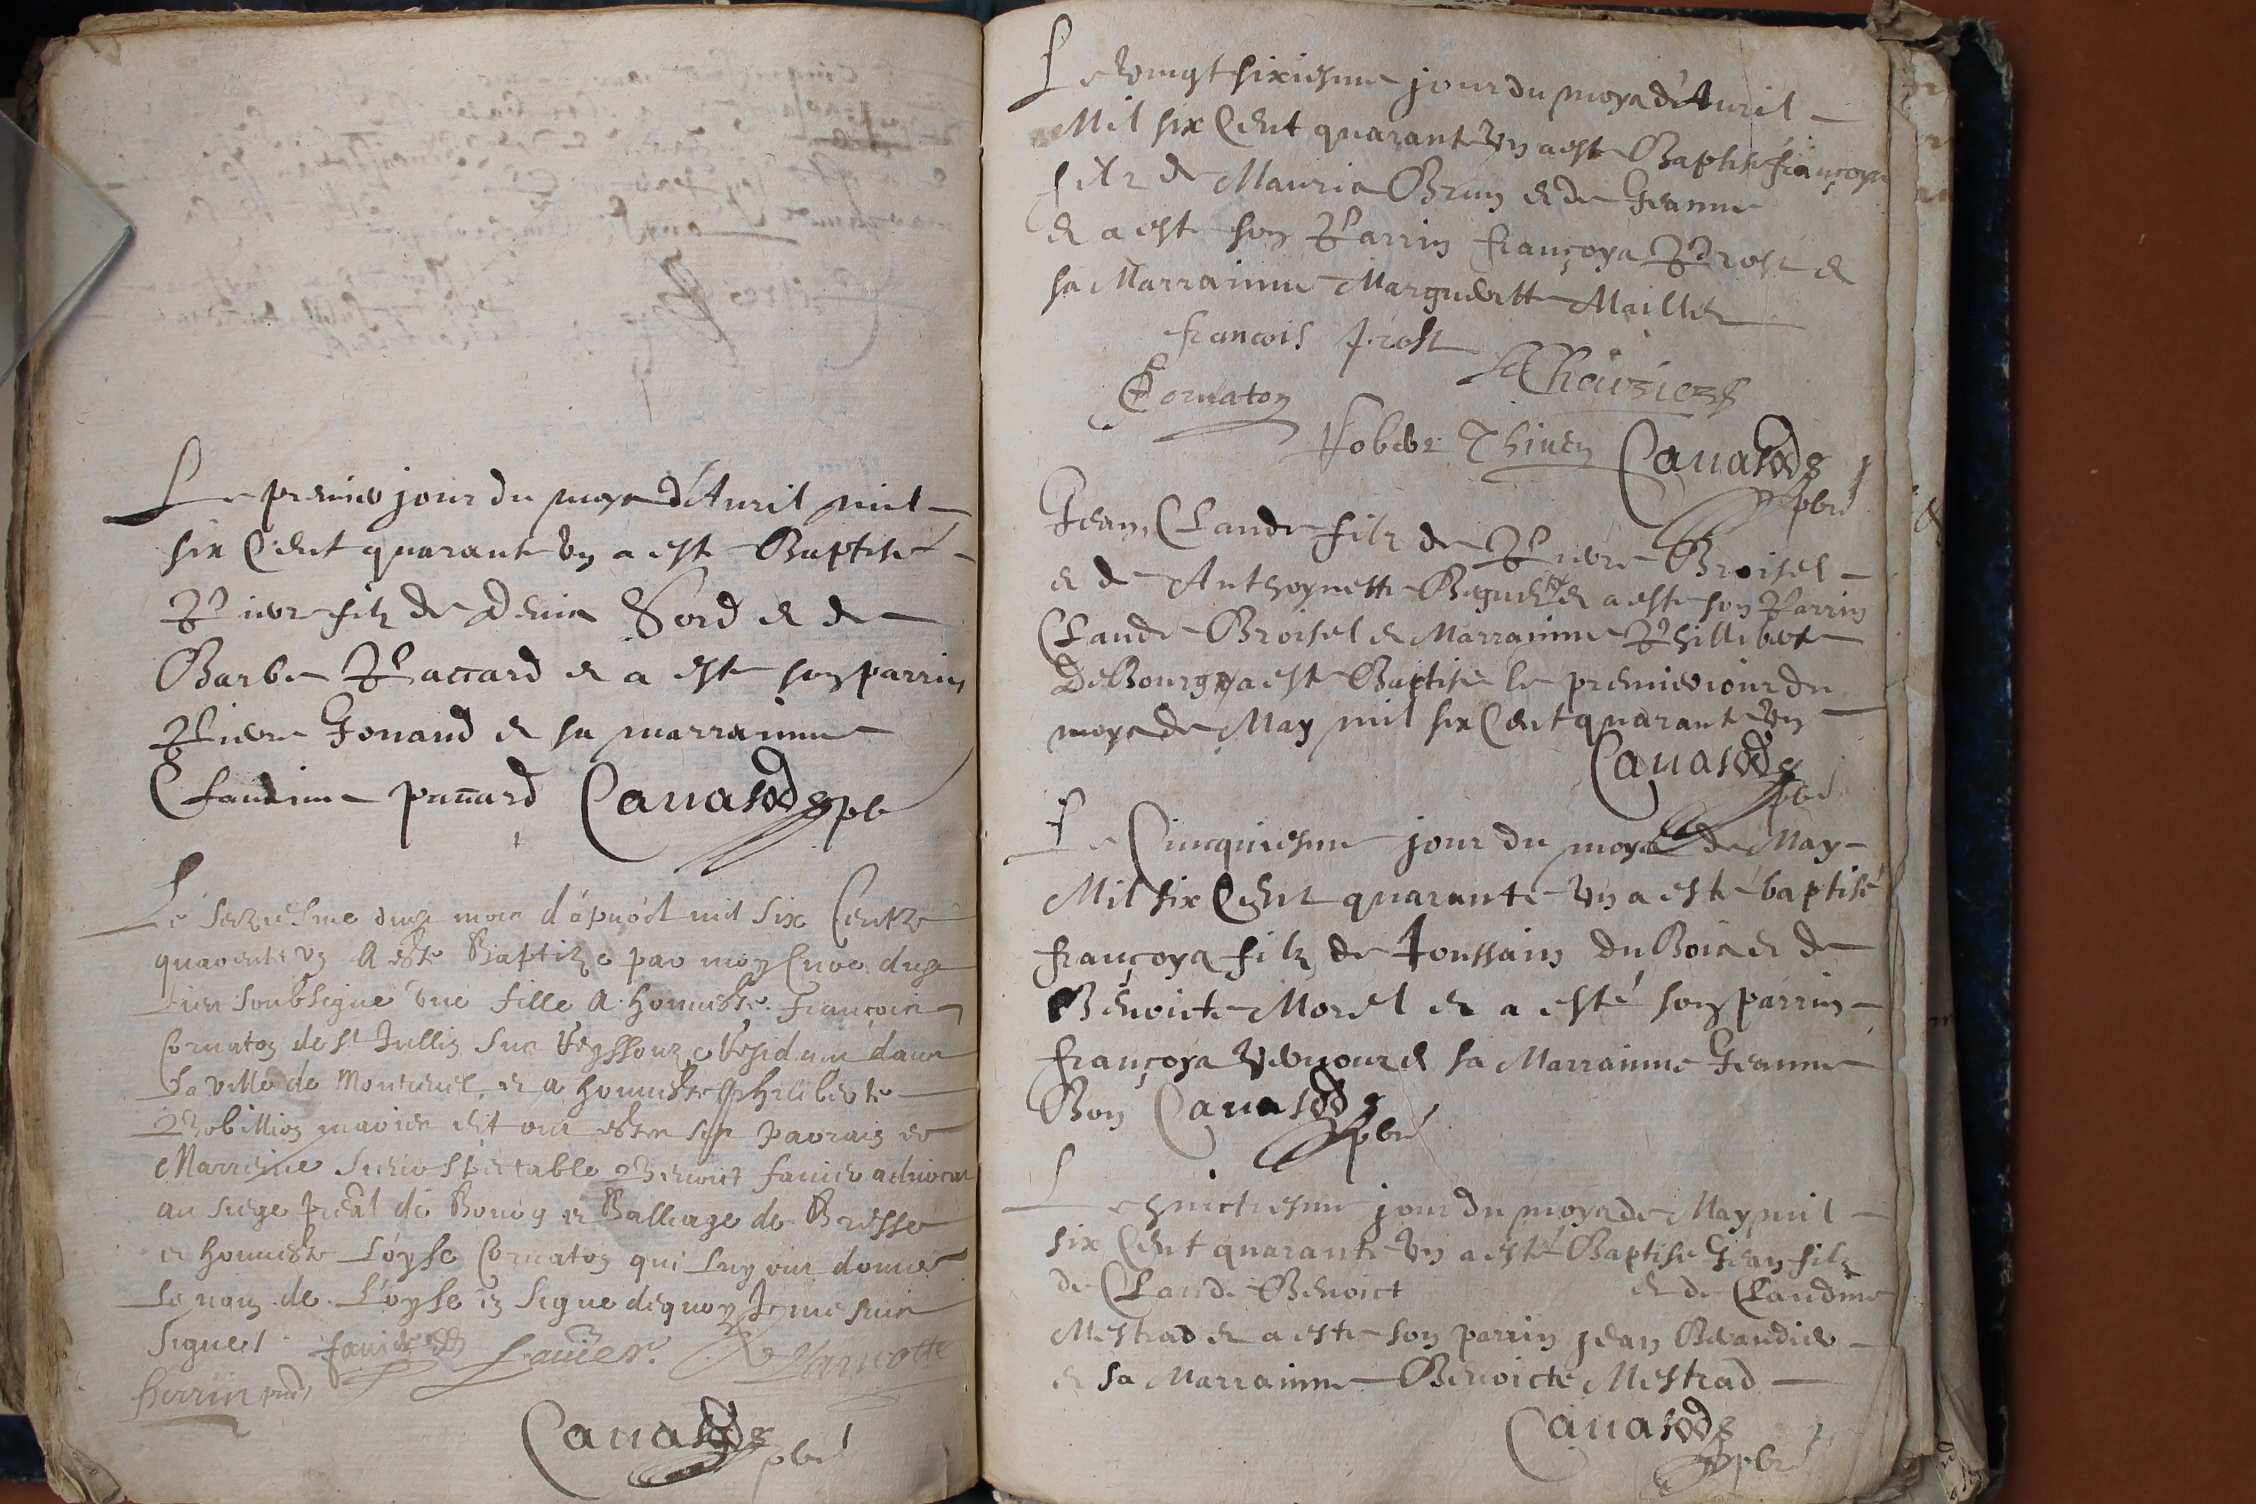 Le premier jour du moys d'Auril mil
six Cent quarant vn a este Baptisé
Pierre filz de Denis Sord et de
Barbe Paccard et a este son parrin
Pierre Gonaud et sa marrainne
Claudine panard Cauasod pbr
Le seziesme du mois d'apuril mil six Centz
quarente vn A este Baptize par moy Cure du
lieu soubsigne vne fille A honneste françois
Cornaton de st Jullin sur Veyssouze Residant dans
La ville de Monteruel et a honneste Philiberte
Robillion maries et ont estes ses Parrain et
Marreine Benoict fauier aduocat
au siege pnal de Bourg et Balliage de Bresse
et honneste Loyse Cornaton qui Luy ont donné
Le nom de Loyse en signe de quoy Je me suis
signe fauier fauier
perrin
Cauasod pbr
Le vingt sixiesme jour du moys d'Auril
Mil six Cent quarant vn a este Baptisé françoys
filz de Mauris Brun et de Jeanne
et a este son Parrin françoys Prost et
sa Marrainne Margueritte Maillet
francois prost
Cornaton
Thiuen Cauasod
pbr
Jean, Claude filz de Pierre Broisel
et de Anthoynette et a este son Parrin
Claude Broisel et Marrainne Phillibert
DeBourg a este Baptise le premier iour du
moys de May mil six Cent quarant vn
Cauasod
pbr
Le Cincquiesme jour du moys de May
Mil six Cent quarante vn a esté baptisé
françoys filz de Toussain du Bois et de
Benoicte Morel et a esté son parrin
françoys et sa Marrainne Jeanne
Bon Cauasod
pbr
Le huictiesme jour du moys de May mil
six Cent quarante vn a esté Baptise Jean filz
de Claude Benoict et de Claudine
Mestrad et a este son parrin jean
et sa Marrainne Benoicte Mestrad
Cauasod
pbr